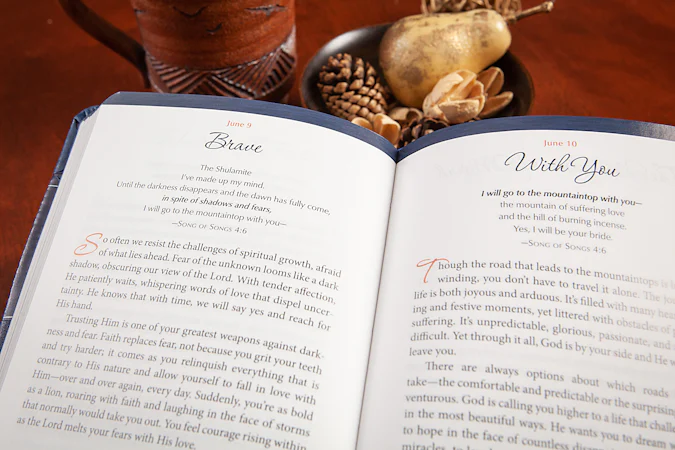 June 9
Brave
The Shulamite
I've made up my mind.
Until the darkness disappears and the dawn has fully come,
in spite of shadows and fears,
I will go to the mountaintop with you—
—Song of Songs 4:6
So often we resist the challenges of spiritual growth, afraid
of what lies ahead. Fear of the unknown looms like a dark
shadow, obscuring our view of the Lord. With tender affection,
He patiently waits, whispering words of love that dispel uncer-
tainty. He knows that with time, we will say yes and reach for
His hand.
Trusting Him is one of your greatest weapons against dark-
ness and fear. Faith replaces fear, not because you grit your teeth
and try harder; it comes as you relinquish everything that is
contrary to His nature and allow yourself to fall in love with
Him—over and over again, every day. Suddenly, you're as bold
as a lion, roaring with faith and laughing in the face of storms
that normally would take you out. You feel courage rising within
as the Lord melts your fears with His love.
June 10
With You
I will go to the mountaintop with you—
the mountain of suffering love
and the hill of burning incense.
Yes, I will be your bride.
—Song of Songs 4:6
Though the road that leads to the mountaintops is
winding, you don't have to travel it alone. The
life is both joyous and arduous. It's filled with many
ing and festive moments, yet littered with obstacles
suffering. It's unpredictable, glorious, passionate, and
difficult. Yet through it all, God is by your side and He
leave you.
There are always options about which roads
take—the comfortable and predictable or the surprising
venturous. God is calling you higher to a life that
in the most beautiful ways. He wants you to dream
to hope in the face of countless
miracles, to